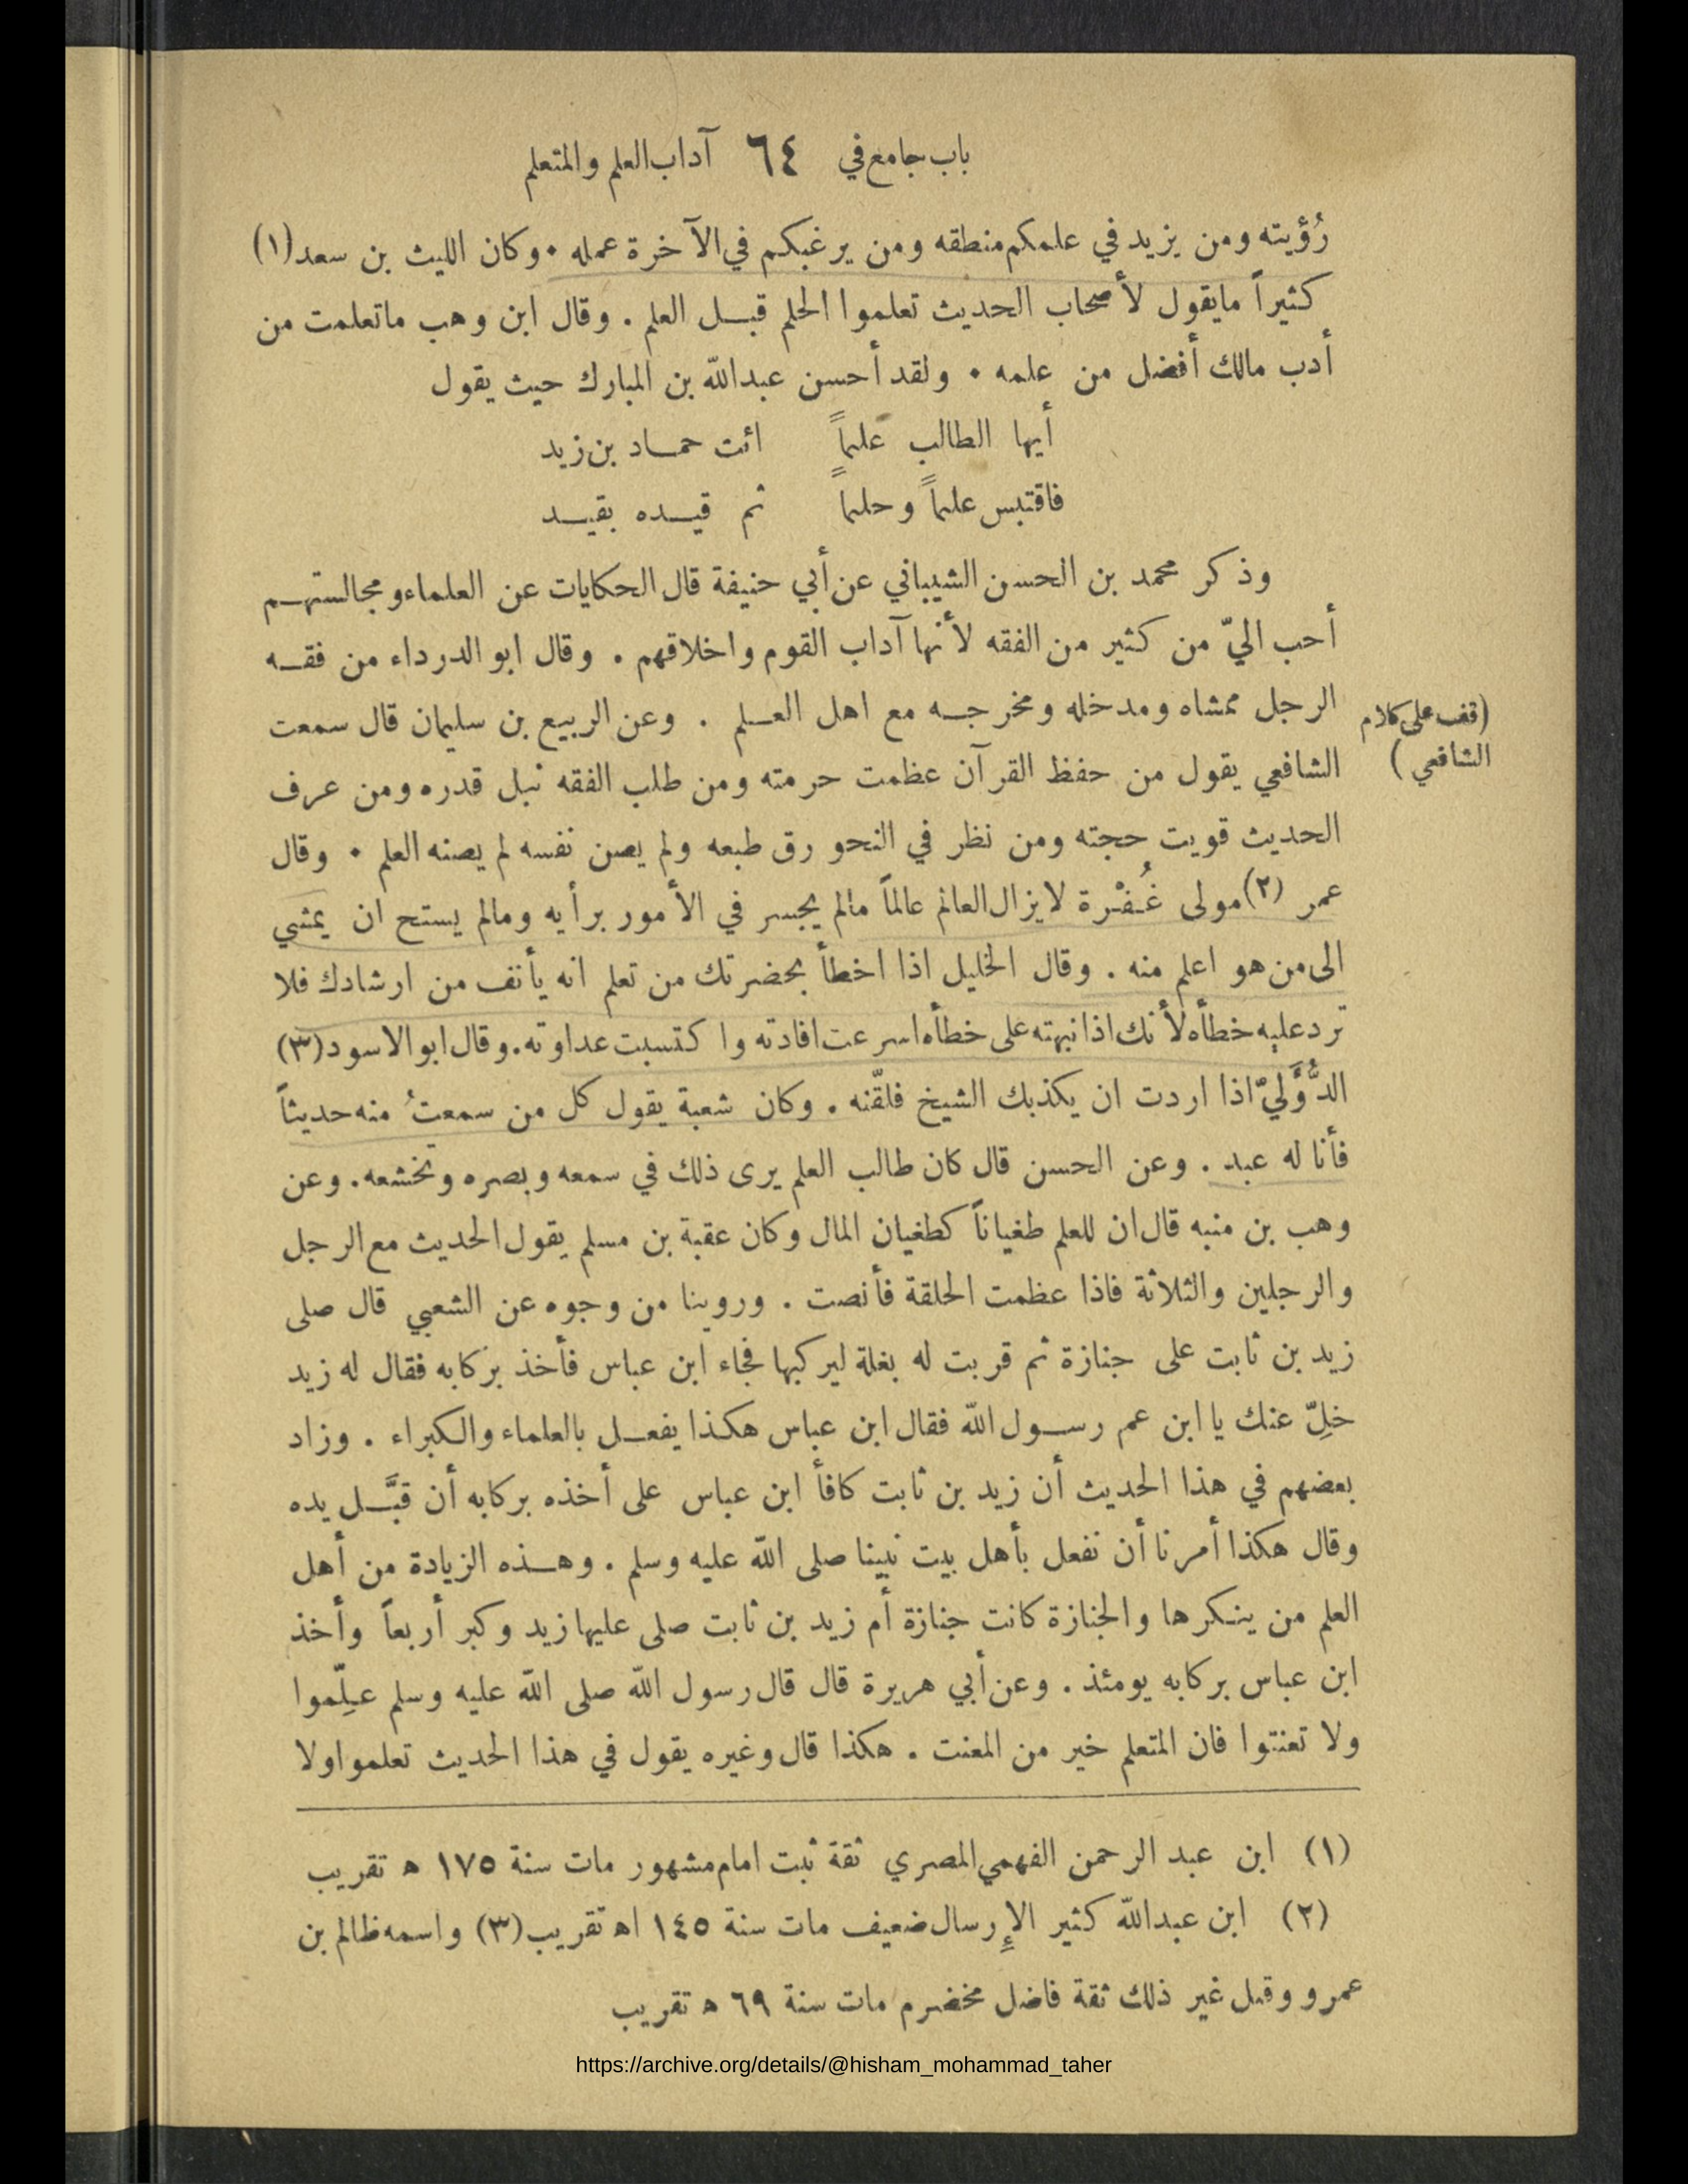 باب جامع في ٦٤ آداب العلم والمتعلم
رُؤيته ومن يزيد في علمكم منطقه ومن يرغبكم في الآخرة عمله . وكان الليث بن سعد (١)
كثيراً مايقول لأصحاب الحديث تعلموا الحلم قبـل العلم . وقال ابن وهب ماتعلمت من
أدب مالك أفضل من علمه . ولقد أحسن عبدالله بن المبارك حيث يقول
أيها الطالب علماً ائت حمـاد بن زيد
فاقتبس علماً وحلماً ثم قيـده بقيـد
وذكر محمد بن الحسن الشيباني عن أبي حنيفة قال الحكايات عن العلماء ومجالستهـم
أحب اليّ من كثير من الفقه لأنها آداب القوم واخلاقهم . وقال ابو الدرداء من فقـه
الرجل ممشاه ومدخله ومخرجـه مع اهل العـلم . وعن الربيع بن سليمان قال سمعت
(قف على كلام
الشافعي )
الشافعي يقول من حفظ القرآن عظمت حرمته ومن طلب الفقه نبل قدره ومن عرف
الحديث قويت حجته ومن نظر في النحو رق طبعه ولم يصن نفسه لم يصنه العلم . وقال
عمر (٢) مولى غُـفْرة لايزال العالم عالماً مالم يجسر في الأمور برأيه ومالم يستح ان يمشي
الى من هو اعلم منه . وقال الخليل اذا اخطأ بحضرتك من تعلم انه يأنف من ارشادك فلا
ترد عليه خطأه لأنك اذا نبهته على خطأه اسرعت افادته واكتسبت عداوته . وقال ابو الاسود (٣)
الدُّؤَليّ اذا اردت ان يكذبك الشيخ فلقّنه . وكان شعبة يقول كل من سمعتُ منه حديثاً
فأنا له عبد . وعن الحسن قال كان طالب العلم يرى ذلك في سمعه وبصره وتخشعه . وعن
وهب بن منبه قال ان للعلم طغياناً كطغيان المال وكان عقبة بن مسلم يقول الحديث مع الرجل
والرجلين والثلاثة فاذا عظمت الحلقة فأنصت . وروينا من وجوه عن الشعبي قال صلى
زيد بن ثابت على جنازة ثم قربت له بغلة ليركبها فجاء ابن عباس فأخذ بركابه فقال له زيد
خلِّ عنك يا ابن عم رسـول الله فقال ابن عباس هكذا يفعـل بالعلماء والكبراء . وزاد
بعضهم في هذا الحديث أن زيد بن ثابت كافأ ابن عباس على أخذه بركابه أن قبَّـل يده
وقال هكذا أمرنا أن نفعل بأهل بيت نبينا صلى الله عليه وسلم . وهـذه الزيادة من أهل
العلم من ينكرها والجنازة كانت جنازة أم زيد بن ثابت صلى عليها زيد وكبر أربعاً وأخذ
ابن عباس بركابه يومئذ . وعن أبي هريرة قال قال رسول الله صلى الله عليه وسلم علِّموا
ولا تعنتوا فان المتعلم خير من المعنت . هكذا قال وغيره يقول في هذا الحديث تعلموا ولا
(١) ابن عبد الرحمن الفهمي المصري ثقة ثبت امام مشهور مات سنة ١٧٥ ه تقريب
(٢) ابن عبدالله كثير الإرسال ضعيف مات سنة ١٤٥ اه تقريب (٣) واسمه ظالم بن
عمرو وقيل غير ذلك ثقة فاضل مخضرم مات سنة ٦٩ ه تقريب
https://archive.org/details/@hisham_mohammad_taher